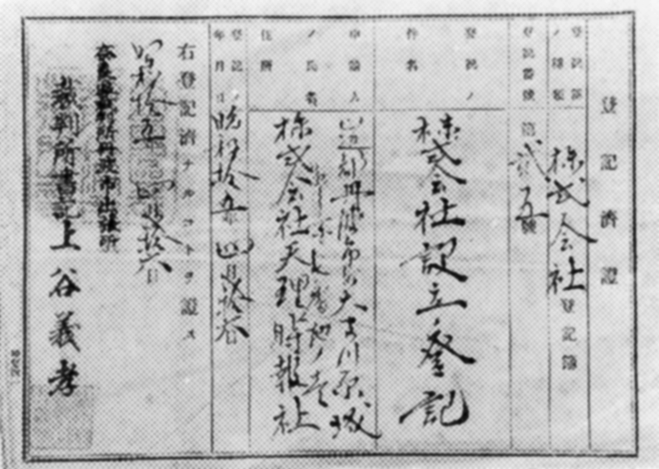 登記濟證
登記簿ノ種類 株式会社登記簿
登記番號 第貳五號
登記ノ件名 株式会社設立登記
申請人ノ氏名住所
山辺郡丹波市町大字川原城
株式会社天理時報社
登記ノ年月日 昭和拾五年四月拾六日
右登記濟ナルコトヲ證ス
昭和拾五年四月拾六日
奈良區裁判所丹波市出張所
裁判所書記 上谷義孝